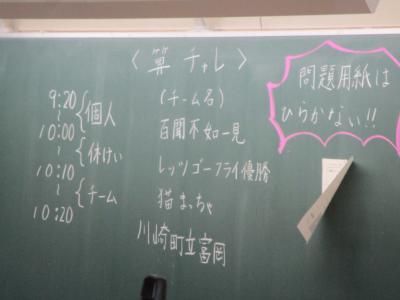 〈算チャレ〉
9:20
〜 個人
10:00
〜 休けい
10:10
〜 チーム
10:20
(チーム名)
百聞不如一見
レッツゴーフライ優勝
猫まっちゃ
川崎町立富岡
問題用紙は
ひらかない!!